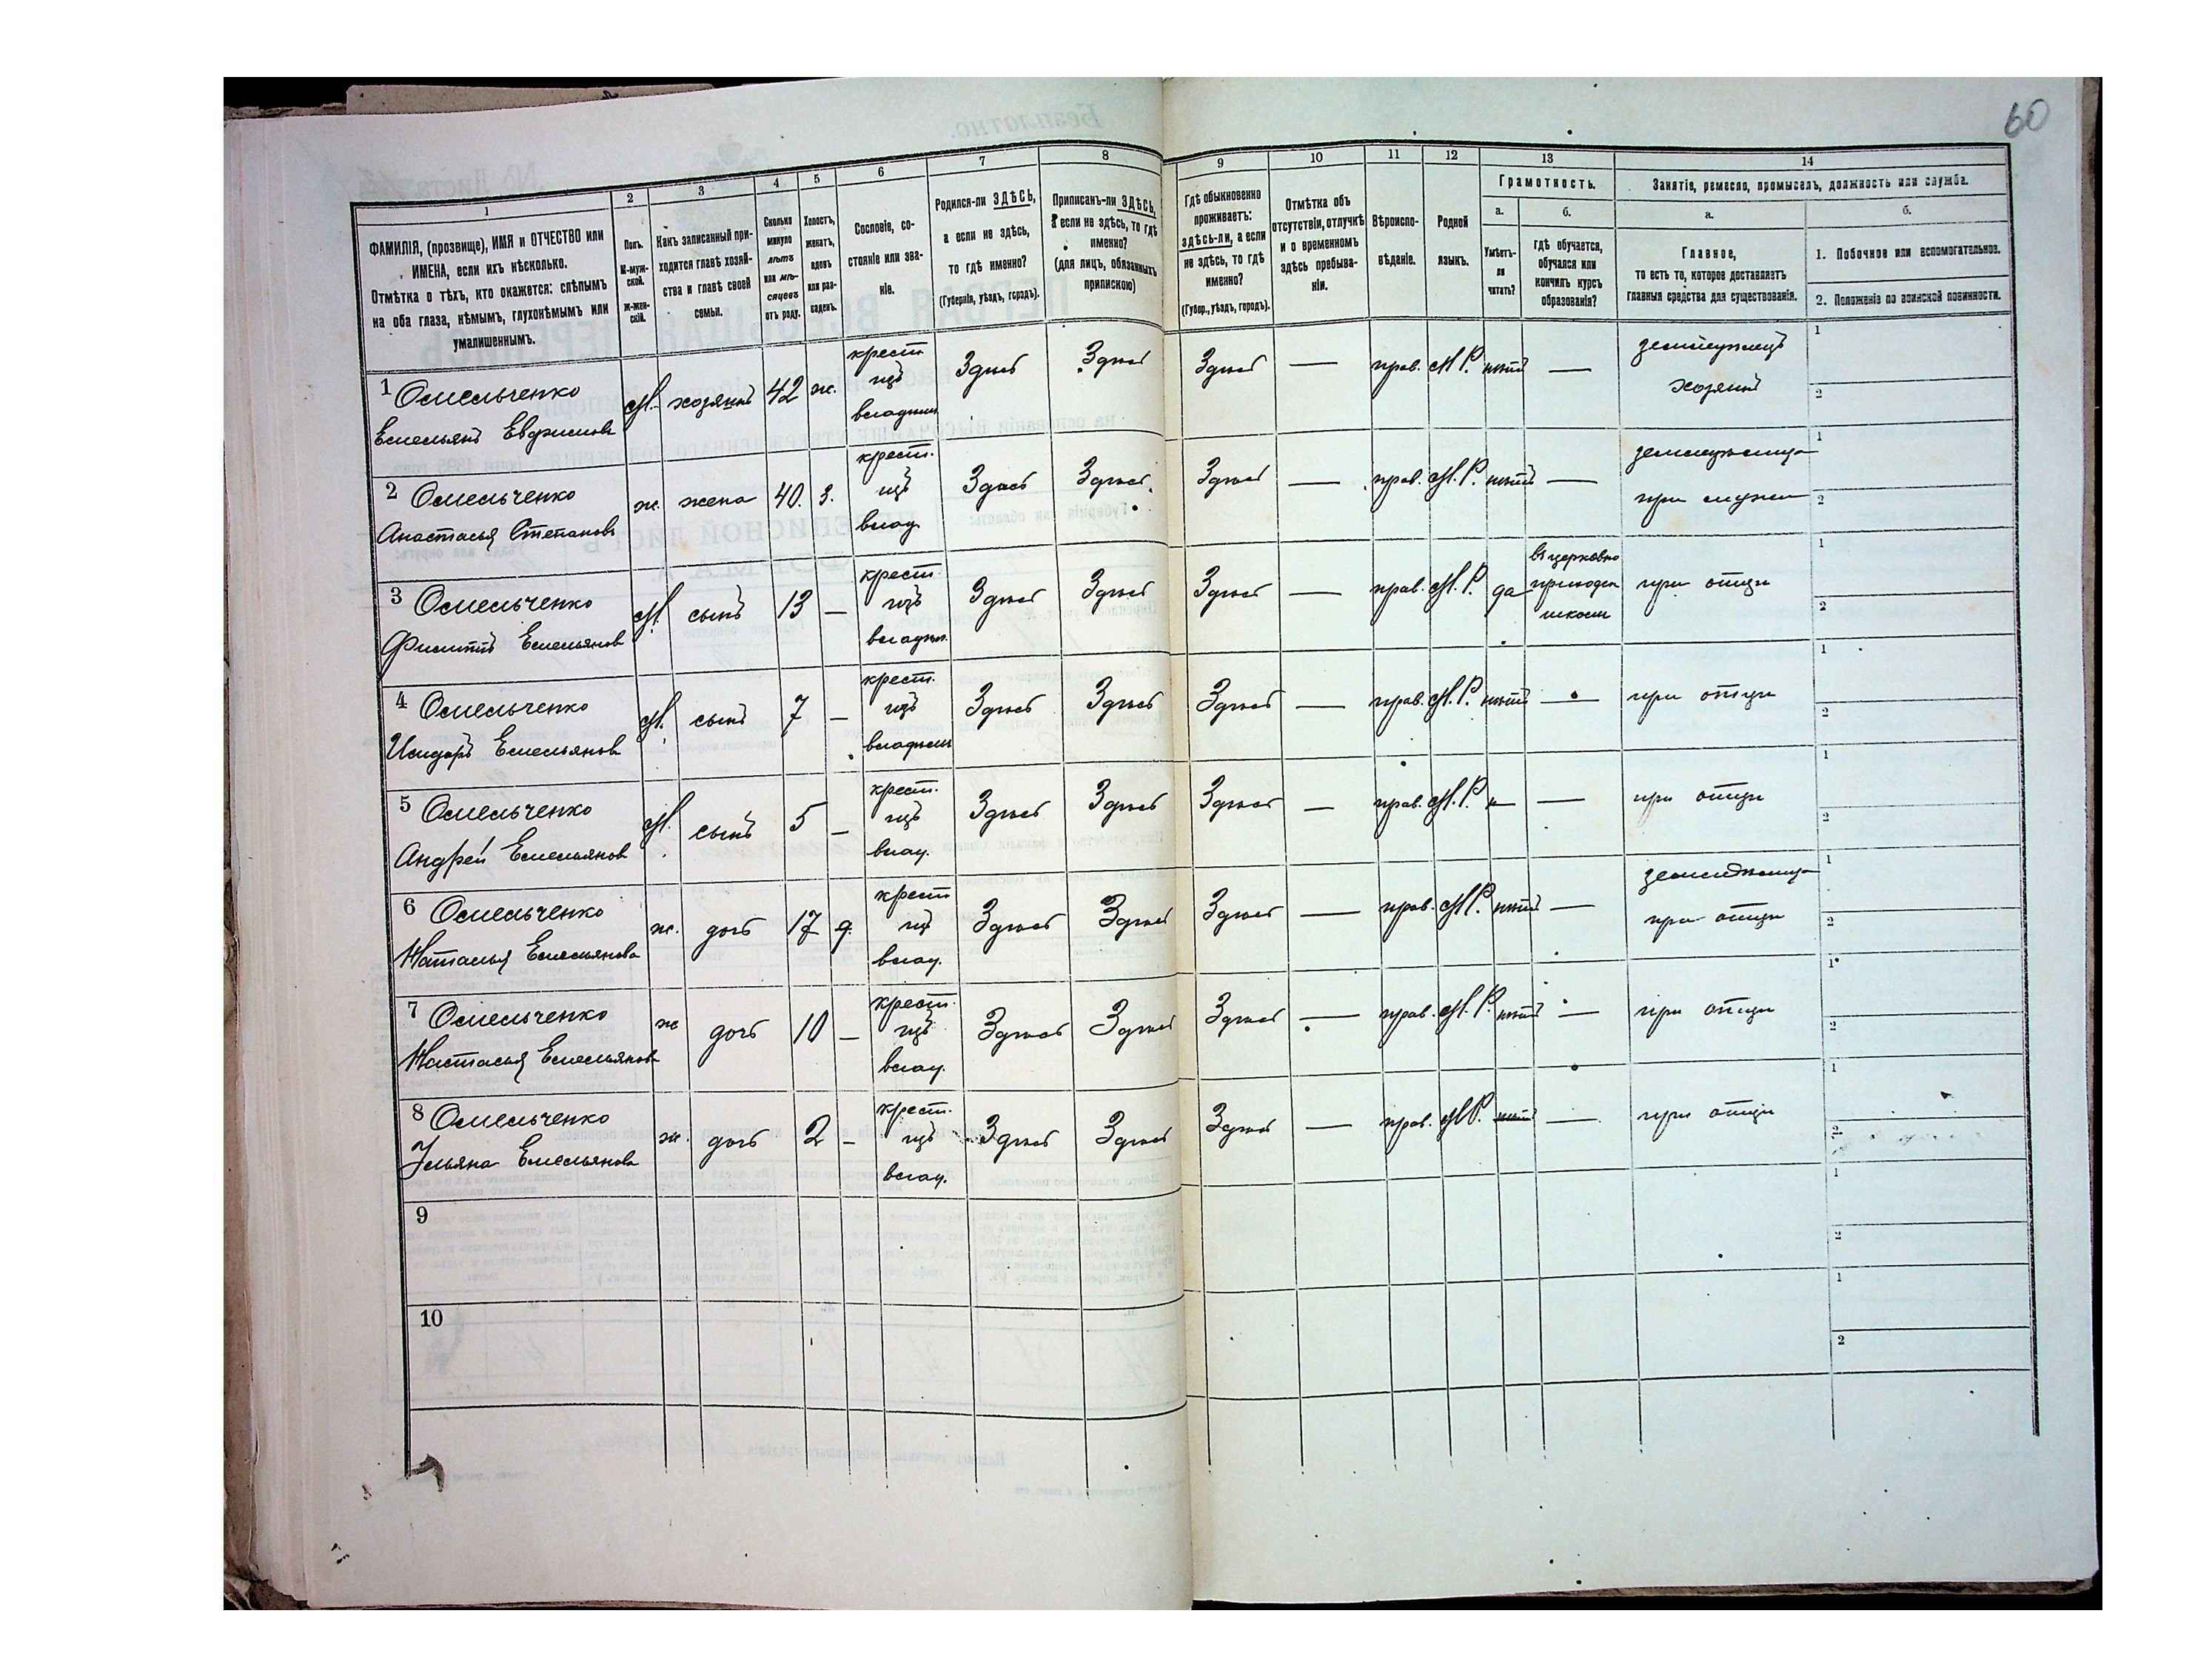 60
1 2 3 4 5 6 7 8 9 10 11 12 13 14
ФАМИЛІЯ, (прозвище), ИМЯ и ОТЧЕСТВО или
ИМЕНА, если ихъ нѣсколько.
Отмѣтка о тѣхъ, кто окажется: слѣпымъ
на оба глаза, нѣмымъ, глухонѣмымъ или
умалишеннымъ.
Полъ.
М-муж-
ской.
Ж-жен-
скій.
Какъ записанный при-
ходится главѣ хозяй-
ства и главѣ своей
семьи.
Сколько
минуло
лѣтъ
или мѣ-
сяцевъ
отъ роду.
Холостъ,
женатъ,
вдовъ
или раз-
веденъ.
Сословіе, со-
стояніе или зва-
ніе.
Родился-ли ЗДѢСЬ,
а если не здѣсь,
то гдѣ именно?
(Губернія, уѣздъ, городъ).
Приписанъ-ли ЗДѢСЬ,
а если не здѣсь, то гдѣ
именно?
(для лицъ, обязанныхъ
припискою)
Гдѣ обыкновенно
проживаетъ:
здѣсь-ли, а если
не здѣсь, то гдѣ
именно?
(Губер., уѣздъ, городъ).
Отмѣтка объ
отсутствіи, отлучкѣ
и о временномъ
здѣсь пребыва-
ніи.
Вѣроиспо-
вѣданіе.
Родной
языкъ.
Грамотность.
а.
Умѣетъ-
ли
читать?
б.
гдѣ обучается,
обучался или
кончилъ курсъ
образованія?
Занятіе, ремесло, промыселъ, должность или служба.
а.
Главное,
то есть то, которое доставляетъ
главныя средства для существованія.
б.
1. Побочное или вспомогательное.
2. Положеніе по воинской повинности.
1 Омельченко
Емельянъ Евфимовъ
М. хозяинъ 42 ж.
крест
изъ
владѣльч
Здѣсь Здѣсь Здѣсь — прав. М.Р. нѣтъ —
землевладѣлецъ
хозяинъ
1
2
2 Омельченко
Анастасья Степанова
ж. жена 40. з.
крест.
изъ
влад.
Здѣсь Здѣсь Здѣсь — прав. М.Р. нѣтъ —
при мужѣ
1
2
3 Омельченко
Филиппъ Емельянов
М. сынъ 13 —
крест
изъ
владѣл.
Здѣсь Здѣсь Здѣсь — прав. М.Р. да
въ церковно
приходск
школѣ
при отцѣ
1
2
4 Омельченко
Исидоръ Емельянов
М. сынъ 7 —
крест.
изъ
владѣльч
Здѣсь Здѣсь Здѣсь — прав. М.Р. нѣтъ —
при отцѣ
1
2
5 Омельченко
Андрей Емельянов
М. сынъ 5 —
крест.
изъ
влад.
Здѣсь Здѣсь Здѣсь — прав. М.Р. н —
при отцѣ
1
2
6 Омельченко
Наталья Емельянова
ж. дочь 17 д.
крест
изъ
влад.
Здѣсь Здѣсь Здѣсь — прав. М.Р. нѣтъ —
при отцѣ
1
2
7 Омельченко
Настасья Емельянова
ж дочь 10 —
крест.
изъ
влад.
Здѣсь Здѣсь Здѣсь — прав. М.Р. нѣтъ —
при отцѣ
1
2
8 Омельченко
Ульяна Емельянова
ж. дочь 2 —
крест.
изъ
влад.
Здѣсь Здѣсь Здѣсь — прав. М.Р. нѣтъ —
при отцѣ
1
2
9
1
2
10
1
2